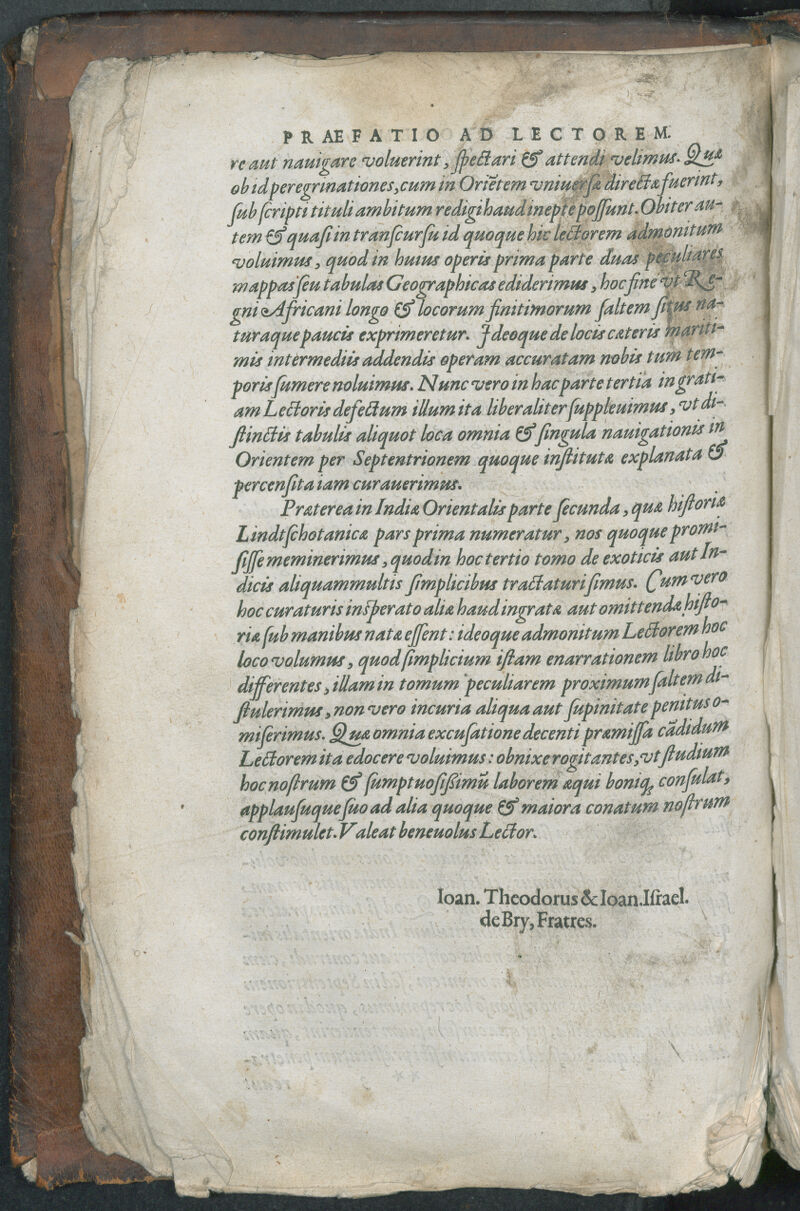 PRAEFATIO AD LECTOREM.
re aut nauigare voluerint, ſpectari & attendi velimus. Quæ
ob id peregrinationes, cum in Oriẽtem vniuerſæ directæ fuerint,
ſub ſcripti tituli ambitum redigi haud inepte poſſunt. Obiter au-
tem & quaſi in tranſcurſu id quoque hic lectorem admonitum
voluimus, quod in huius operis prima parte duas peculiares
mappas ſeu tabulas Geographicas ediderimus, hoc fine vt Re-
gni Africani longo & locorum finitimorum ſaltem ſitus na-
turaque paucis exprimeretur. Ideoque de locis cæteris mariti-
mis intermediis addendis operam accuratam nobis tum tem-
poris ſumere noluimus. Nunc vero in hac parte tertia in grati-
am Lectoris defectum illum ita liberaliter ſuppleuimus, vt di-
ſtinctis tabulis aliquot loca omnia & ſingula nauigationis in
Orientem per Septentrionem quoque inſtitutæ explanata &
percenſita iam curauerimus.
Præterea in Indiæ Orientalis parte ſecunda, quæ hiſtoriæ
Lindtſchotanicæ pars prima numeratur, nos quoque promi-
ſiſſe meminerimus, quod in hoc tertio tomo de exoticis aut In-
dicis aliquammultis ſimplicibus tractaturi ſimus. Cum vero
hoc curaturis inſperato aliæ haud ingratæ aut omittendæ hiſto-
riæ ſub manibus natæ eſſent: ideoque admonitum Lectorem hoc
loco volumus, quod ſimplicium iſtam enarrationem libro hoc
differentes, illam in tomum peculiarem proximum ſaltem di-
ſtulerimus, non vero incuria aliqua aut ſupinitate penitus o-
miſerimus. Quæ omnia excuſatione decenti præmiſſa cãdidum
Lectorem ita edocere voluimus: obnixe rogitantes, vt ſtudium
hoc noſtrum & ſumptuoſiſſimũ laborem æqui boniq; conſulat,
applauſuque ſuo ad alia quoque & maiora conatum noſtrum
conſtimulet. Valeat beneuolus Lector.
Ioan. Theodorus & Ioan. Iſrael.
de Bry, Fratres.